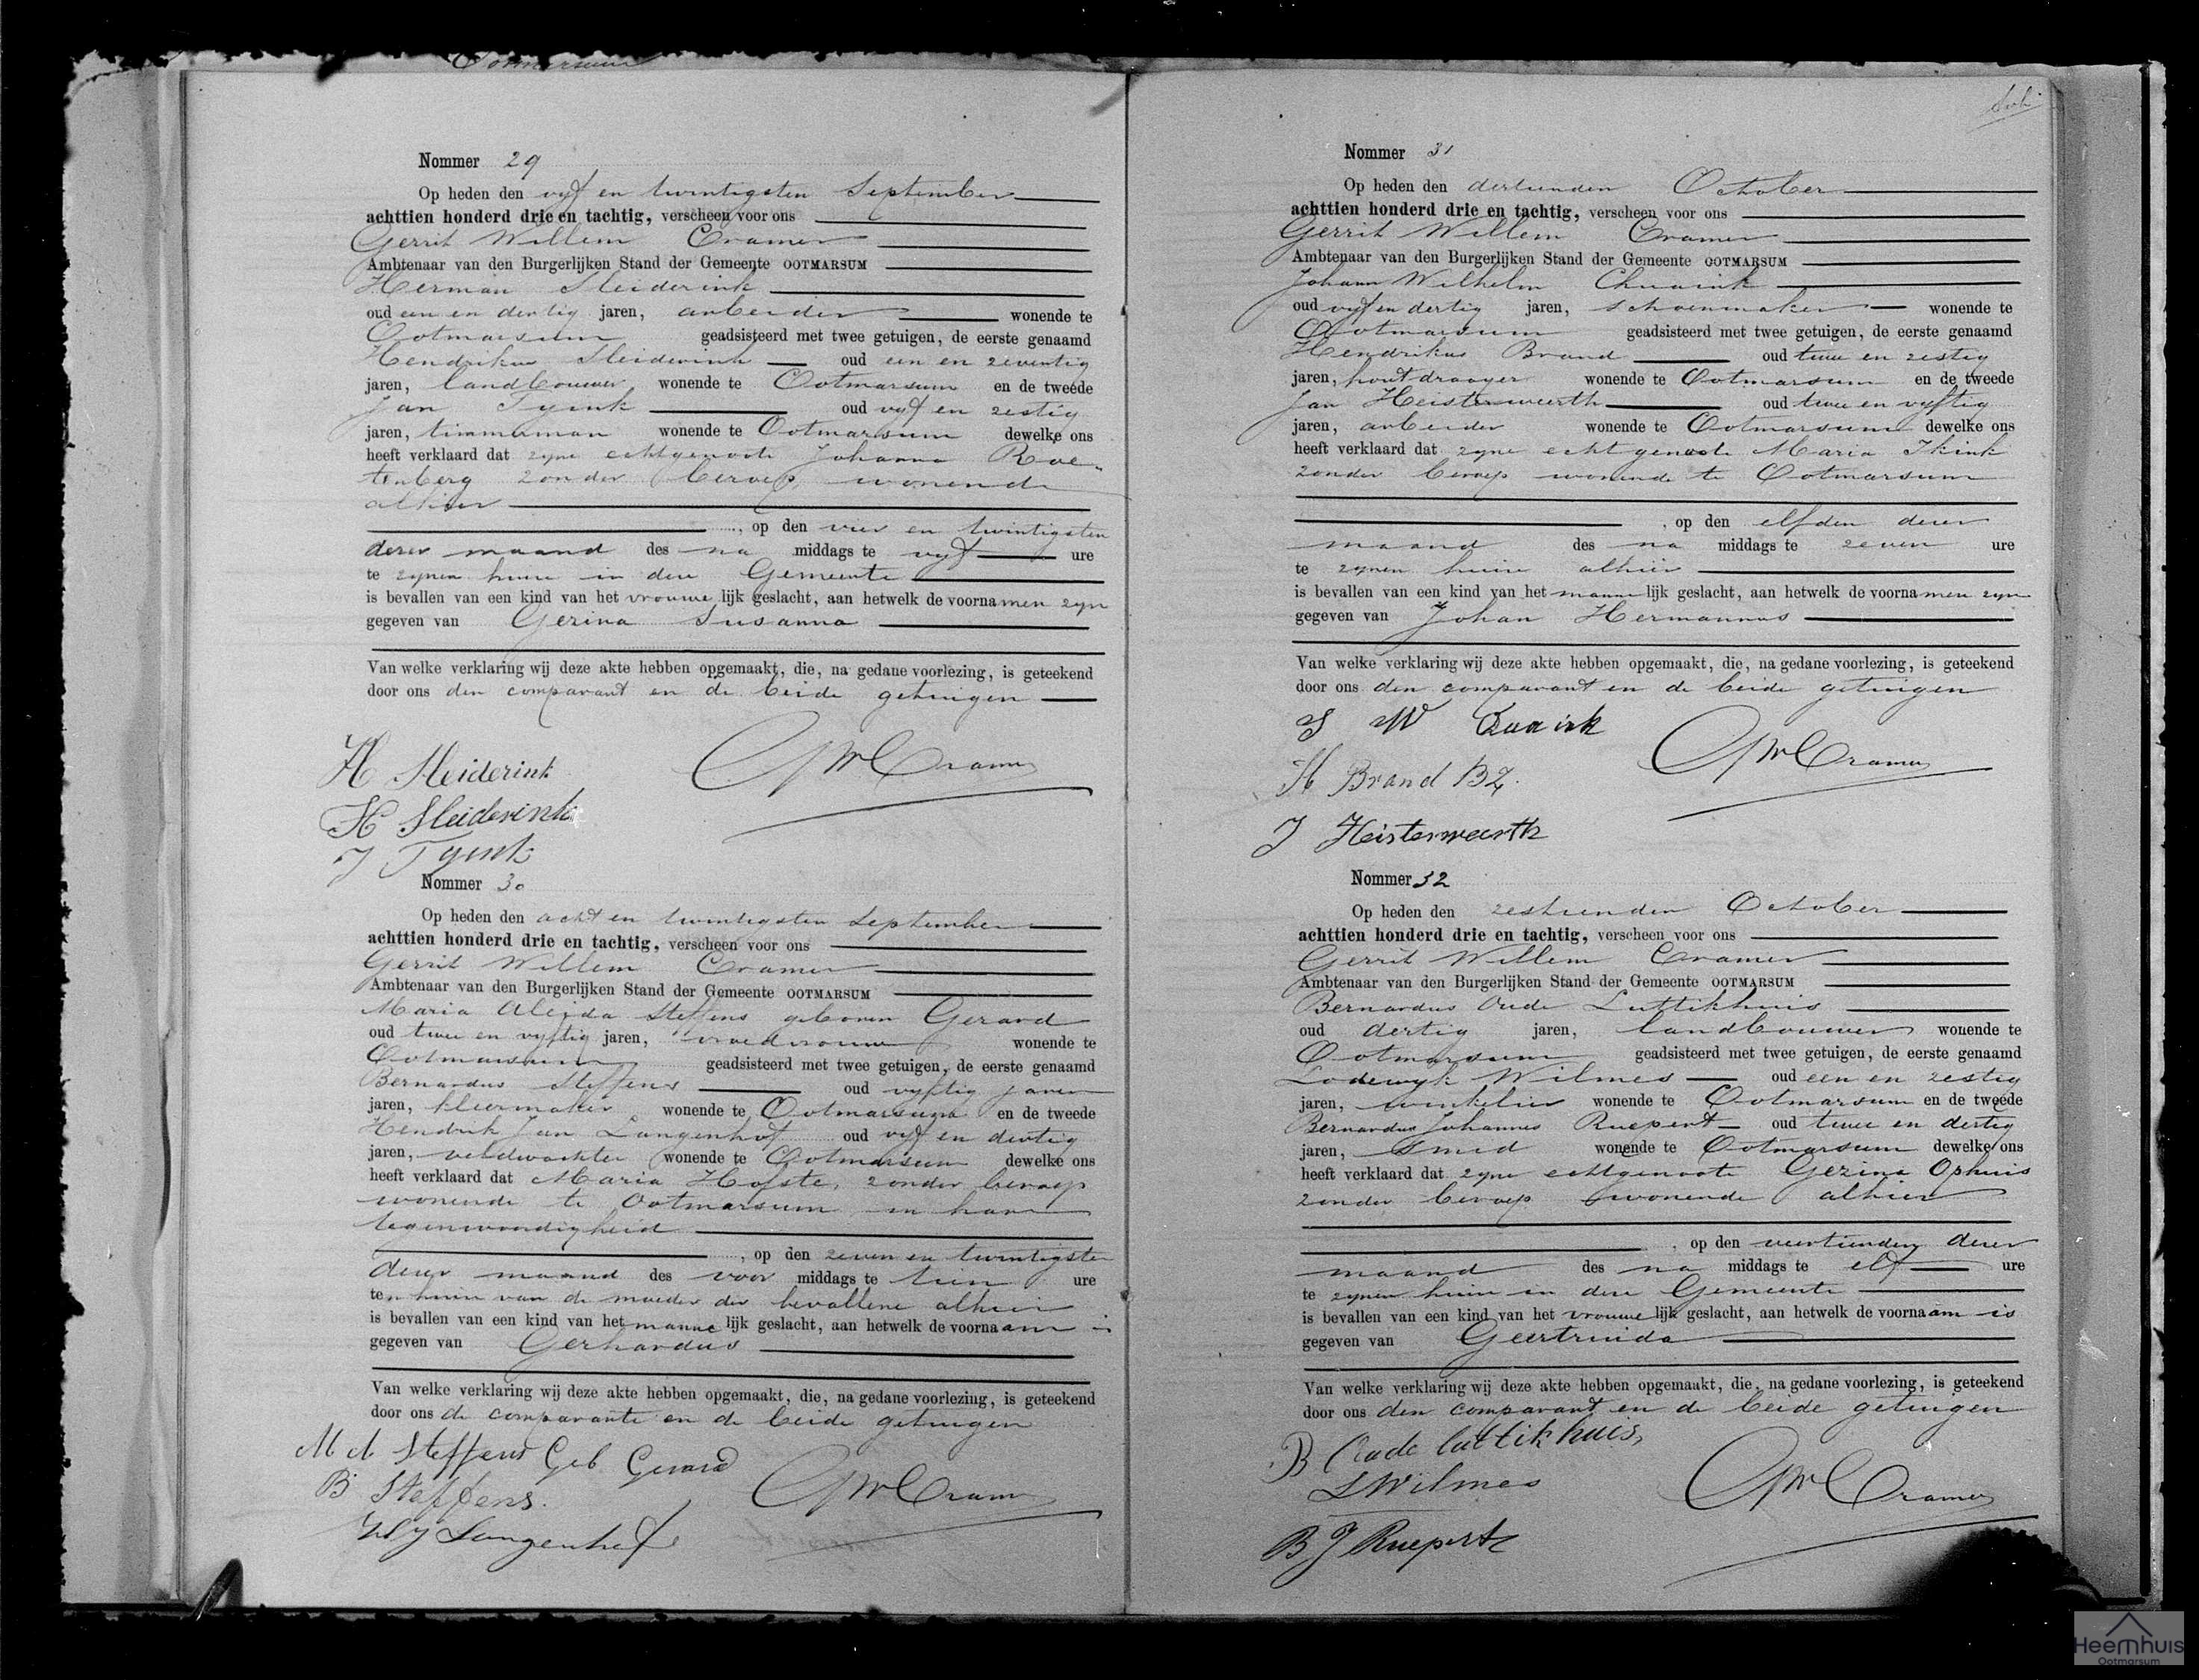 Ootmarsum
Nommer 29
Op heden den vyf en twintigsten September
achttien honderd drie en tachtig, verscheen voor ons
Gerrit Willem Cramer
Ambtenaar van den Burgerlijken Stand der Gemeente OOTMARSUM
Herman Sleiderink
oud een en dertig jaren, arbeider wonende te
Ootmarsum geadsisteerd met twee getuigen, de eerste genaamd
Hendrikus Sleiderink oud een en zeventig
jaren, landbouwer wonende te Ootmarsum en de tweede
Jan Tyink oud vyf en zestig
jaren, timmerman wonende te Ootmarsum dewelke ons
heeft verklaard dat zyne echtgenoote Johanna Roe-
tenberg zonder beroep, wonende
alhier
, op den vier en twintigsten
dezer maand des na middags te vyf ure
te zynen huize in deze Gemeente
is bevallen van een kind van het vrouwelijk geslacht, aan hetwelk de voornamen zyn
gegeven van Gezina Susanna
Van welke verklaring wij deze akte hebben opgemaakt, die, na gedane voorlezing, is geteekend
door ons den comparant en de beide getuigen
H Sleiderink
GW Cramer
H Sleiderink
J Tyink
Nommer 30
Op heden den acht en twintigsten September
achttien honderd drie en tachtig, verscheen voor ons
Gerrit Willem Cramer
Ambtenaar van den Burgerlijken Stand der Gemeente OOTMARSUM
Maria Aleida Steffens geboren Gerard
oud twee en vyftig jaren, vroedvrouw wonende te
Ootmarsum geadsisteerd met twee getuigen, de eerste genaamd
Bernardus Steffens oud vyftig jaren
jaren, kleermaker wonende te Ootmarsum en de tweede
Hendrik Jan Langenhof oud vyf en dertig
jaren, veldwachter wonende te Ootmarsum dewelke ons
heeft verklaard dat Maria Hofste, zonder beroep
wonende te Ootmarsum in hare
tegenwoordigheid
, op den zeven en twintigsten
dezer maand des voor middags te tien ure
ten huize van de moeder der bevallene alhier
is bevallen van een kind van het mannelijk geslacht, aan hetwelk de voornaam is
gegeven van Gerhardus
Van welke verklaring wij deze akte hebben opgemaakt, die, na gedane voorlezing, is geteekend
door ons de comparante en de beide getuigen
M A Steffens Geb Gerard
B Steffens.
GW Cramer
HJ Langenhof
Nommer 31
Op heden den dertienden October
achttien honderd drie en tachtig, verscheen voor ons
Gerrit Willem Cramer
Ambtenaar van den Burgerlijken Stand der Gemeente OOTMARSUM
Johann Wilhelm
oud vyf en dertig jaren, schoenmaker wonende te
Ootmarsum geadsisteerd met twee getuigen, de eerste genaamd
Hendrikus Brand oud twee en zestig
jaren, houtdraayer wonende te Ootmarsum en de tweede
Jan Heisterweerth oud twee en vyftig
jaren, arbeider wonende te Ootmarsum dewelke ons
heeft verklaard dat zyne echtgenoote Maria Ikink
zonder beroep wonende te Ootmarsum
, op den elfden dezer
maand des na middags te zeven ure
te zynen huize alhier
is bevallen van een kind van het mannelijk geslacht, aan hetwelk de voornamen zyn
gegeven van Johan Hermannus
Van welke verklaring wij deze akte hebben opgemaakt, die, na gedane voorlezing, is geteekend
door ons den comparant en de beide getuigen
J W
GW Cramer
H Brand BZ.
J Heisterweerth
Nommer 32
Op heden den zestienden October
achttien honderd drie en tachtig, verscheen voor ons
Gerrit Willem Cramer
Ambtenaar van den Burgerlijken Stand der Gemeente OOTMARSUM
Bernardus Oude Luttikhuis
oud dertig jaren, landbouwer wonende te
Ootmarsum geadsisteerd met twee getuigen, de eerste genaamd
Lodewyk Wilmes oud een en zestig
jaren, winkelier wonende te Ootmarsum en de tweede
Bernardus Johannes Ruepert oud twee en dertig
jaren, smid wonende te Ootmarsum dewelke ons
heeft verklaard dat zyne echtgenoote Gezina Ophuis
zonder beroep wonende alhier
, op den veertienden dezer
maand des na middags te elf ure
te zynen huize in deze Gemeente
is bevallen van een kind van het vrouwelijk geslacht, aan hetwelk de voornaam is
gegeven van Geertruida
Van welke verklaring wij deze akte hebben opgemaakt, die, na gedane voorlezing, is geteekend
door ons den comparant en de beide getuigen
B Oude luttikhuis,
L Wilmes
GW Cramer
B J Ruepert
Heemhuis
Ootmarsum